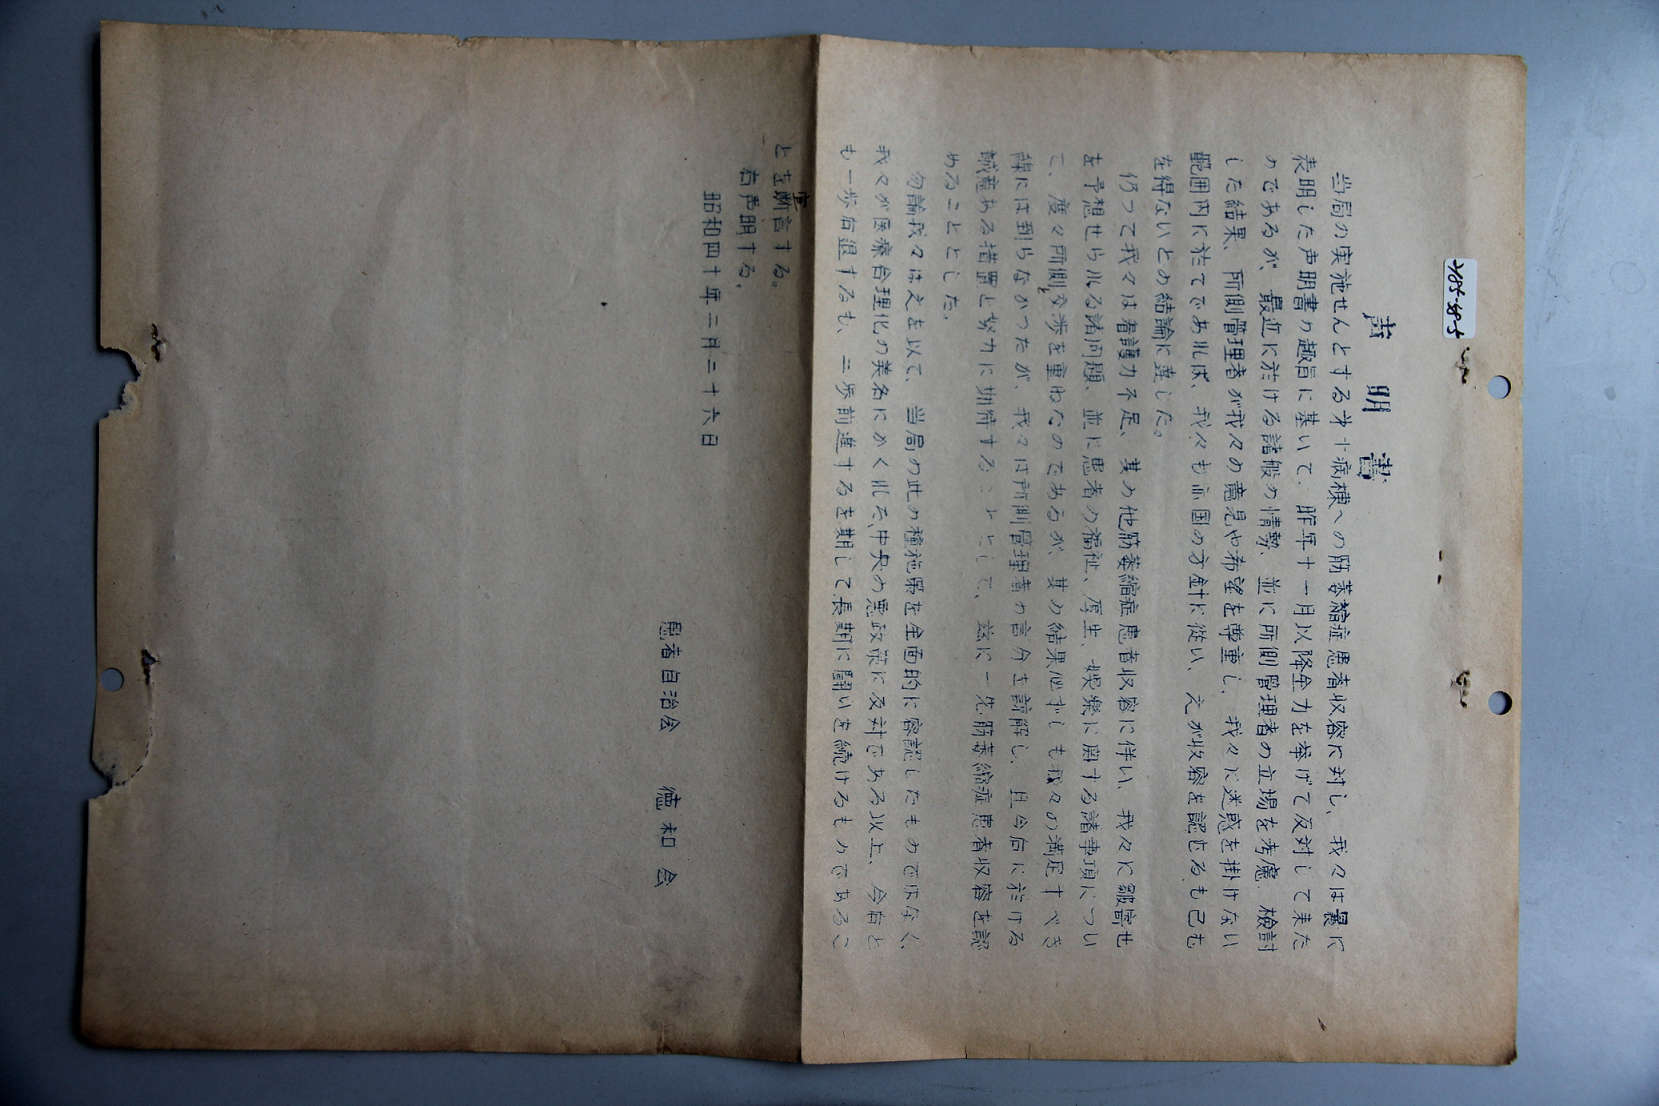 声明書
当局の実施せんとする才十病棟への筋萎縮症患者収容に対し、我々は曩に
表明した声明書の趣旨に基いて、昨年十一月以降全力を挙げて反対して来た
のであるが、最近に於ける諸般の情勢、並に所側管理者の立場を考慮、検討
した結果、所側管理者が我々の意見や希望を尊重し、我々に迷惑を掛けない
範囲内に於てであれば、我々も亦国の方針に従い、之が収容を認むるも已む
を得ないとの結論に達した。
仍つて我々は看護力不足、其の他筋萎縮症患者収容に伴い、我々に皺寄せ
を予想せらるる諸問題、並に患者の福祉、厚生、娯楽に関する諸事項につい
て、度々所側と交渉を重ねたのであるが、其の結果必ずしも我々の満足すべき
線には到らなかつたが、我々は所側管理者の言分を諒解し、且今后に於ける
誠意ある措置と努力に期待することとして、茲に一先筋萎縮症患者収容を認
めることとした。
勿論我々は之を以て、当局の此の種施策を全面的に容認したものではなく、
我々が医療合理化の美名にかくれた、中央の悪政策に反対である以上、今后と
も一歩后退するも、二歩前進するを期して長期に闘いを続けるものであるこ
とを断言する。
宣
右声明する。
昭和四十年二月二十六日
患者自治会 徳和会